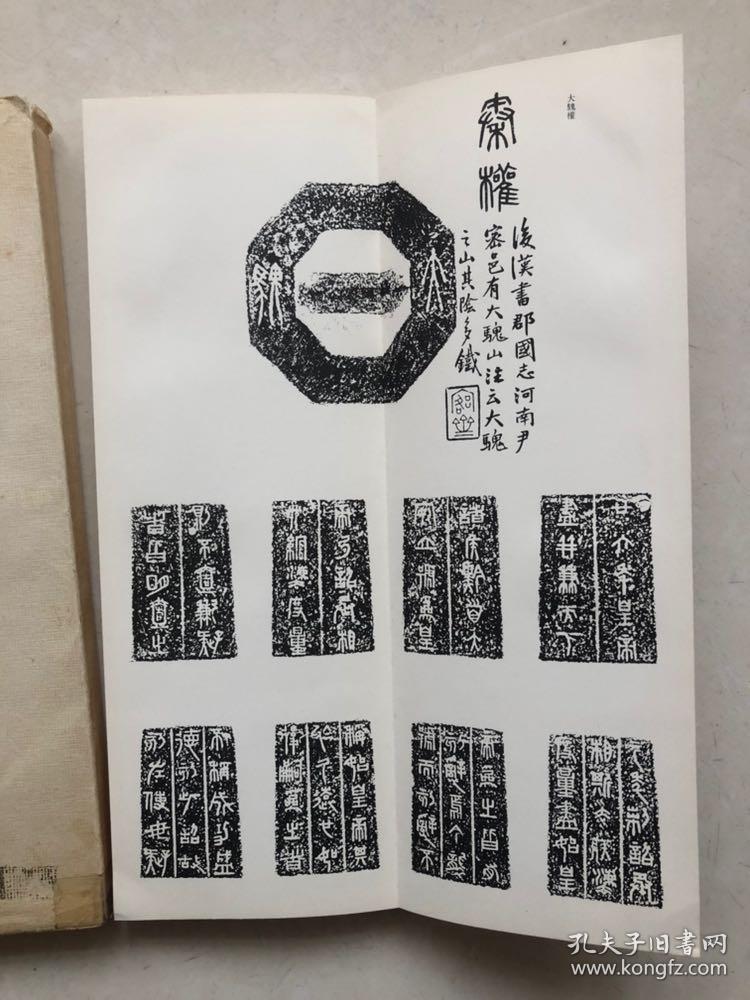 大騩權
秦權
後漢書郡國志河南尹
密邑有大騩山注云大騩
之山其陰多鐵
大騩
廿六年皇帝
盡并兼天下
諸矦黔首大
安立號為皇
帝乃詔丞相
狀綰灋度量
則不壹歉疑
者皆明壹之
元年制詔丞
相斯去疾灋
度量盡始皇
帝為之皆有
刻辭焉今襲
號而刻辭不
稱始皇帝其
於久遠也如
後嗣為之者
不稱成功盛
德刻此詔故
刻左使毋疑
孔夫子旧書网
www.kongfz.com